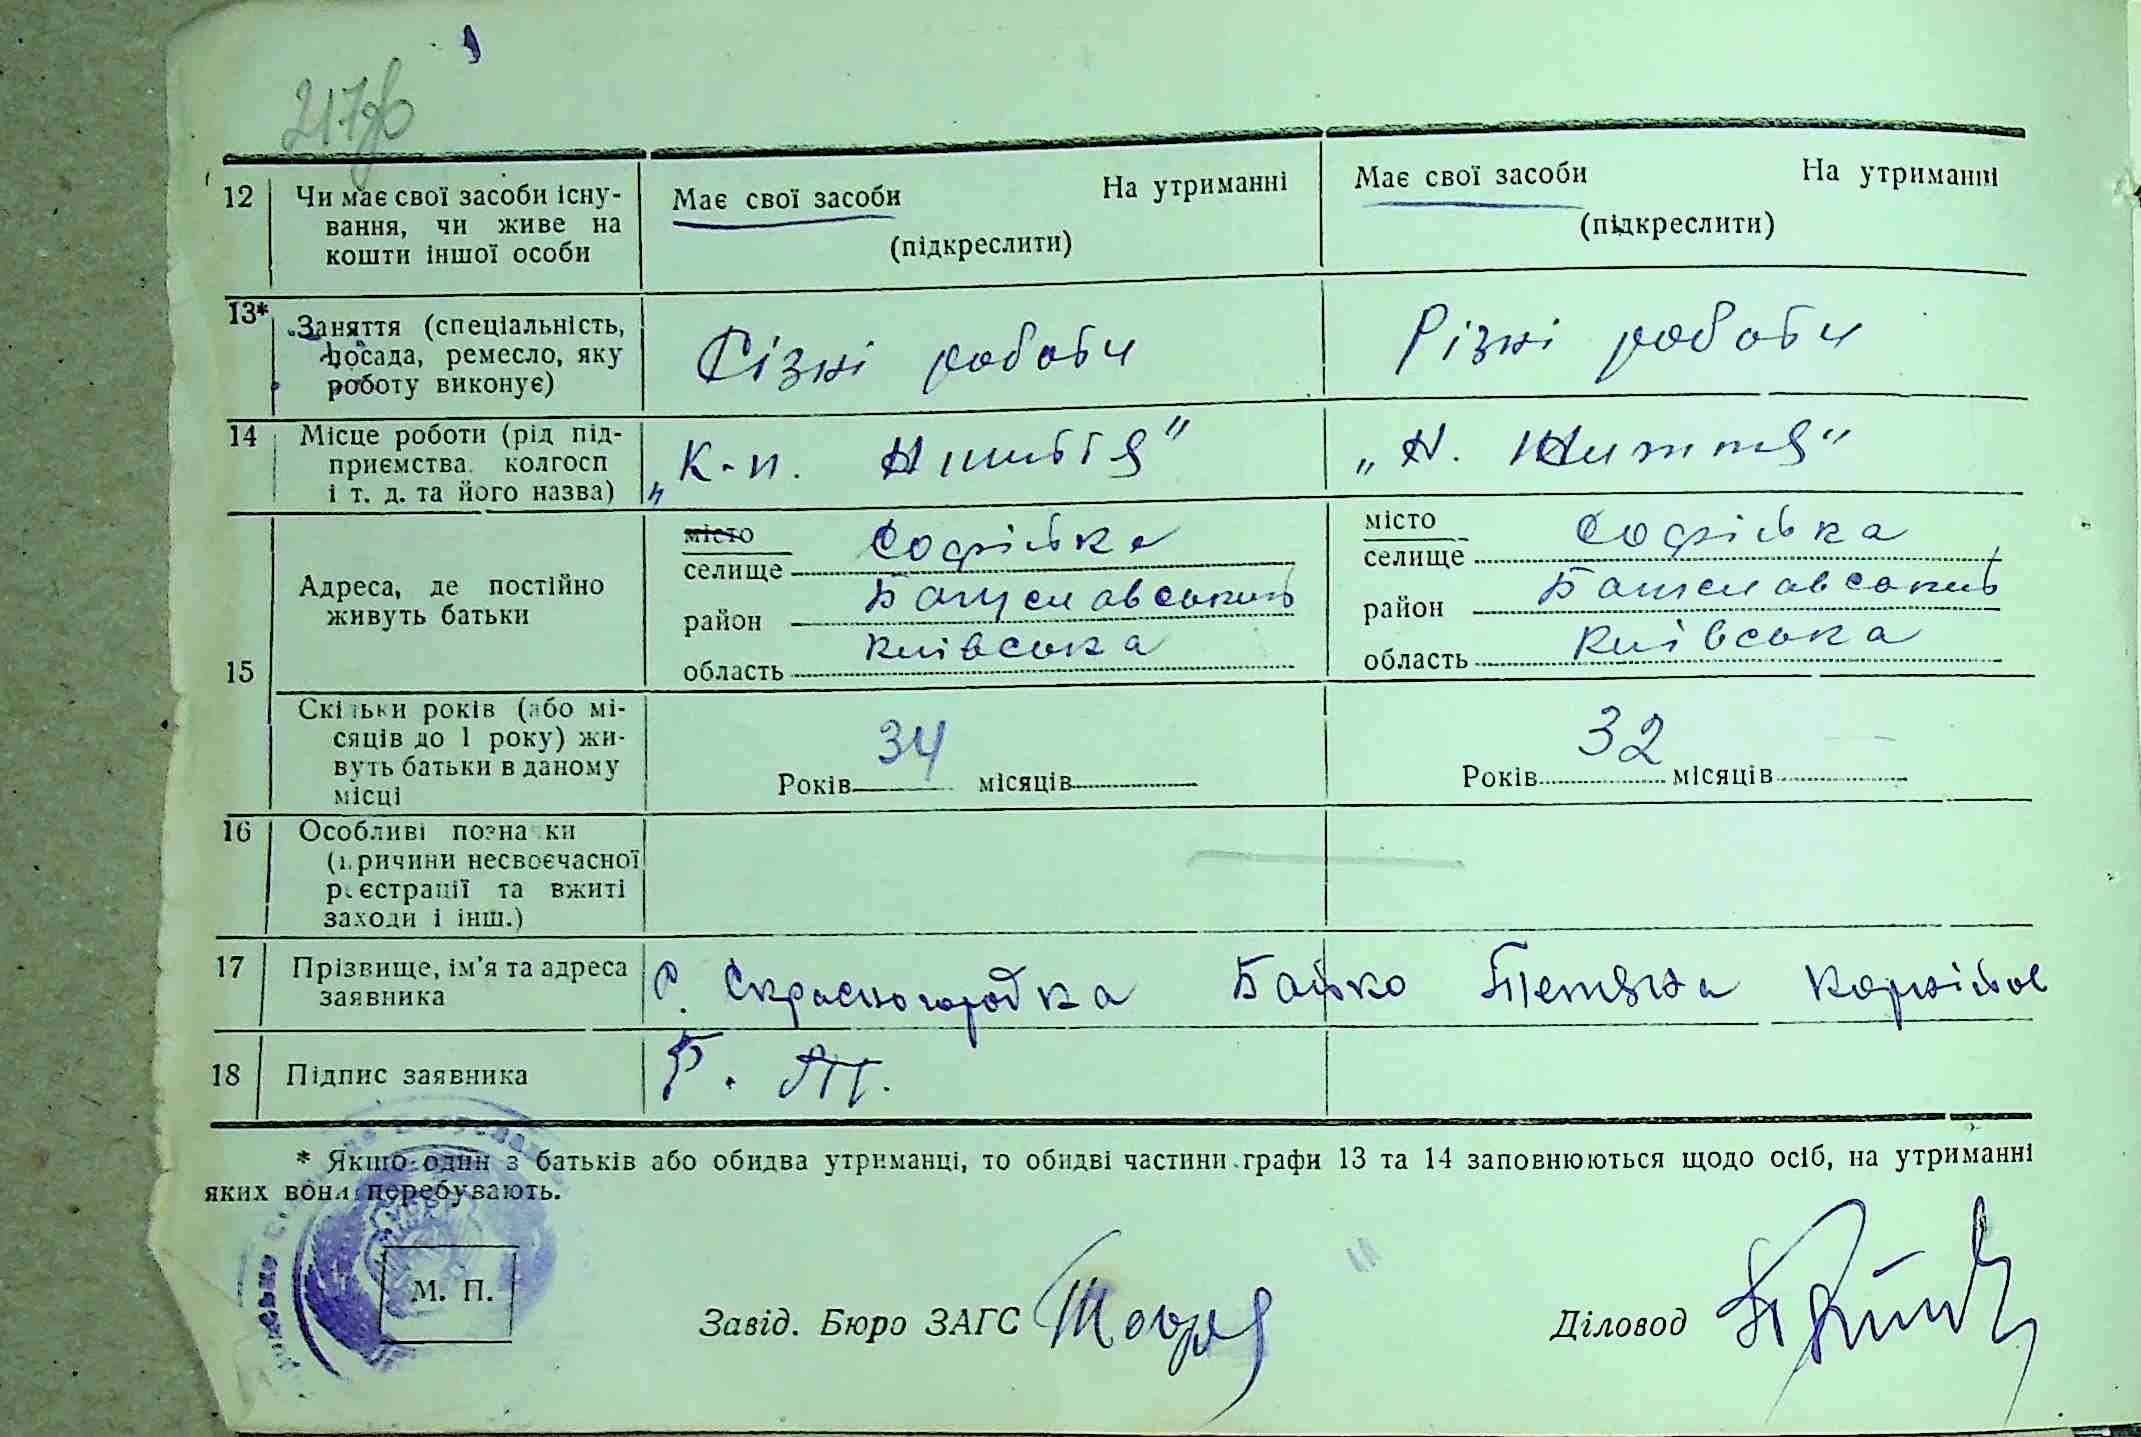 217зв
12 Чи має свої засоби існу-
вання, чи живе на
кошти іншої особи
Має свої засоби На утриманні
(підкреслити)
Має свої засоби На утриманні
(підкреслити)
13* Заняття (спеціальність,
посада, ремесло, яку
роботу виконує)
Різні роботи
Різні роботи
14 Місце роботи (рід під-
приємства, колгосп
і т. д. та його назва)
„К-п. Н життя"
„Н. Життя"
15
Адреса, де постійно
живуть батьки
місто Софіївка
селище
район Богуславський
область Київська
місто Софіївка
селище
район Богуславський
область Київська
Скільки років (або мі-
сяців до 1 року) жи-
вуть батьки в даному
місці
Років 34 місяців
Років 32 місяців
16 Особливі позначки
(причини несвоєчасної
реєстрації та вжиті
заходи і інш.)
17 Прізвище, ім'я та адреса
заявника
Байко Тетяна Корніївов
18 Підпис заявника
Б. Т.
* Якщо один з батьків або обидва утриманці, то обидві частини графи 13 та 14 заповнюються щодо осіб, на утриманні
яких вони перебувають.
М. П.
Завід. Бюро ЗАГС
Діловод